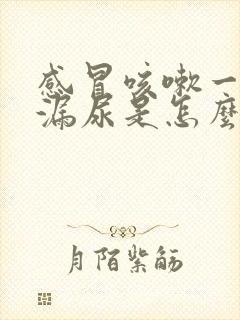 感冒咳嗽一
漏尿是怎麼
月陌紫觞